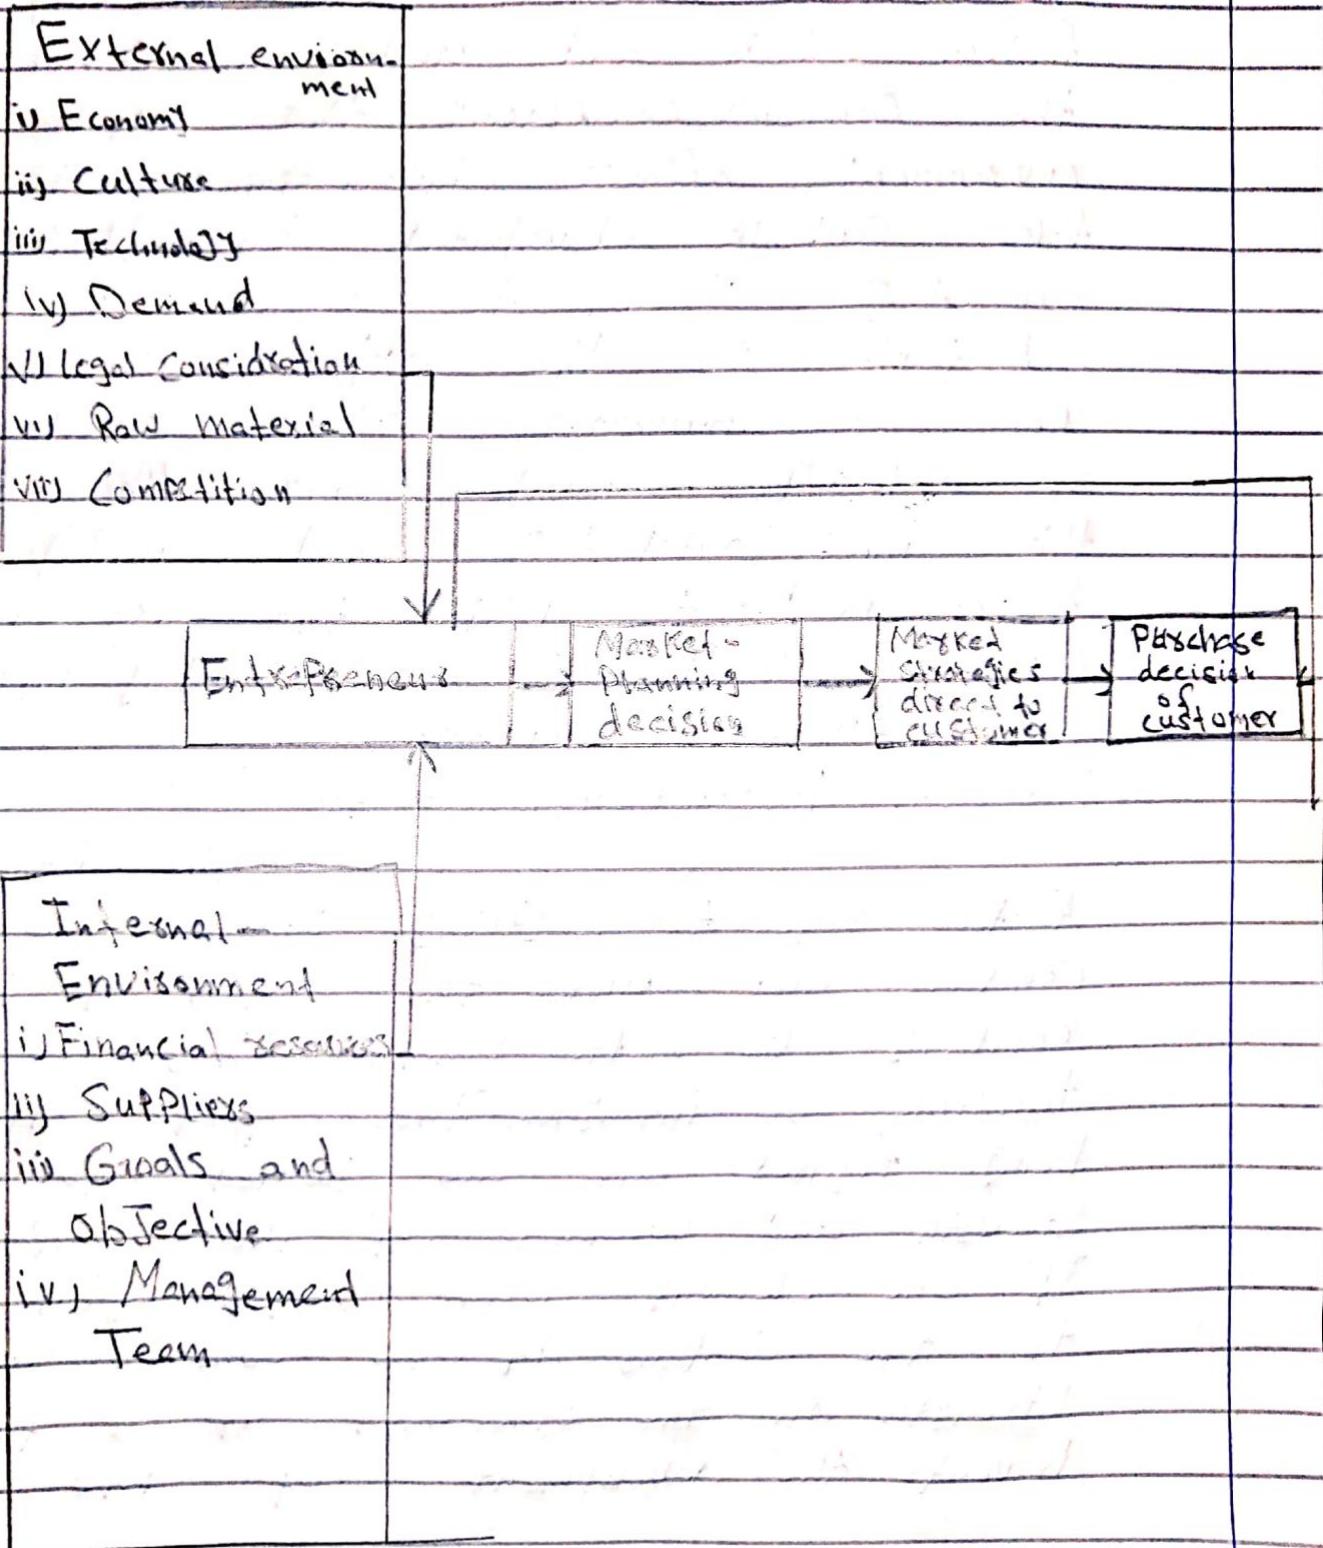 External enviorn-
ment
i) Economy
ii) Culture
iii) Technology
iv) Demand
v) Legal Considration
vi) Raw material
vii) Competition
Entrepreneur
Market-
Planning
decision
Marked
Strategies
direct to
customer
Purchase
decision
of
customer
Internal-
Environment
i) Financial resources
ii) Suppliers
iii) Goals and
objective
iv) Management
Team